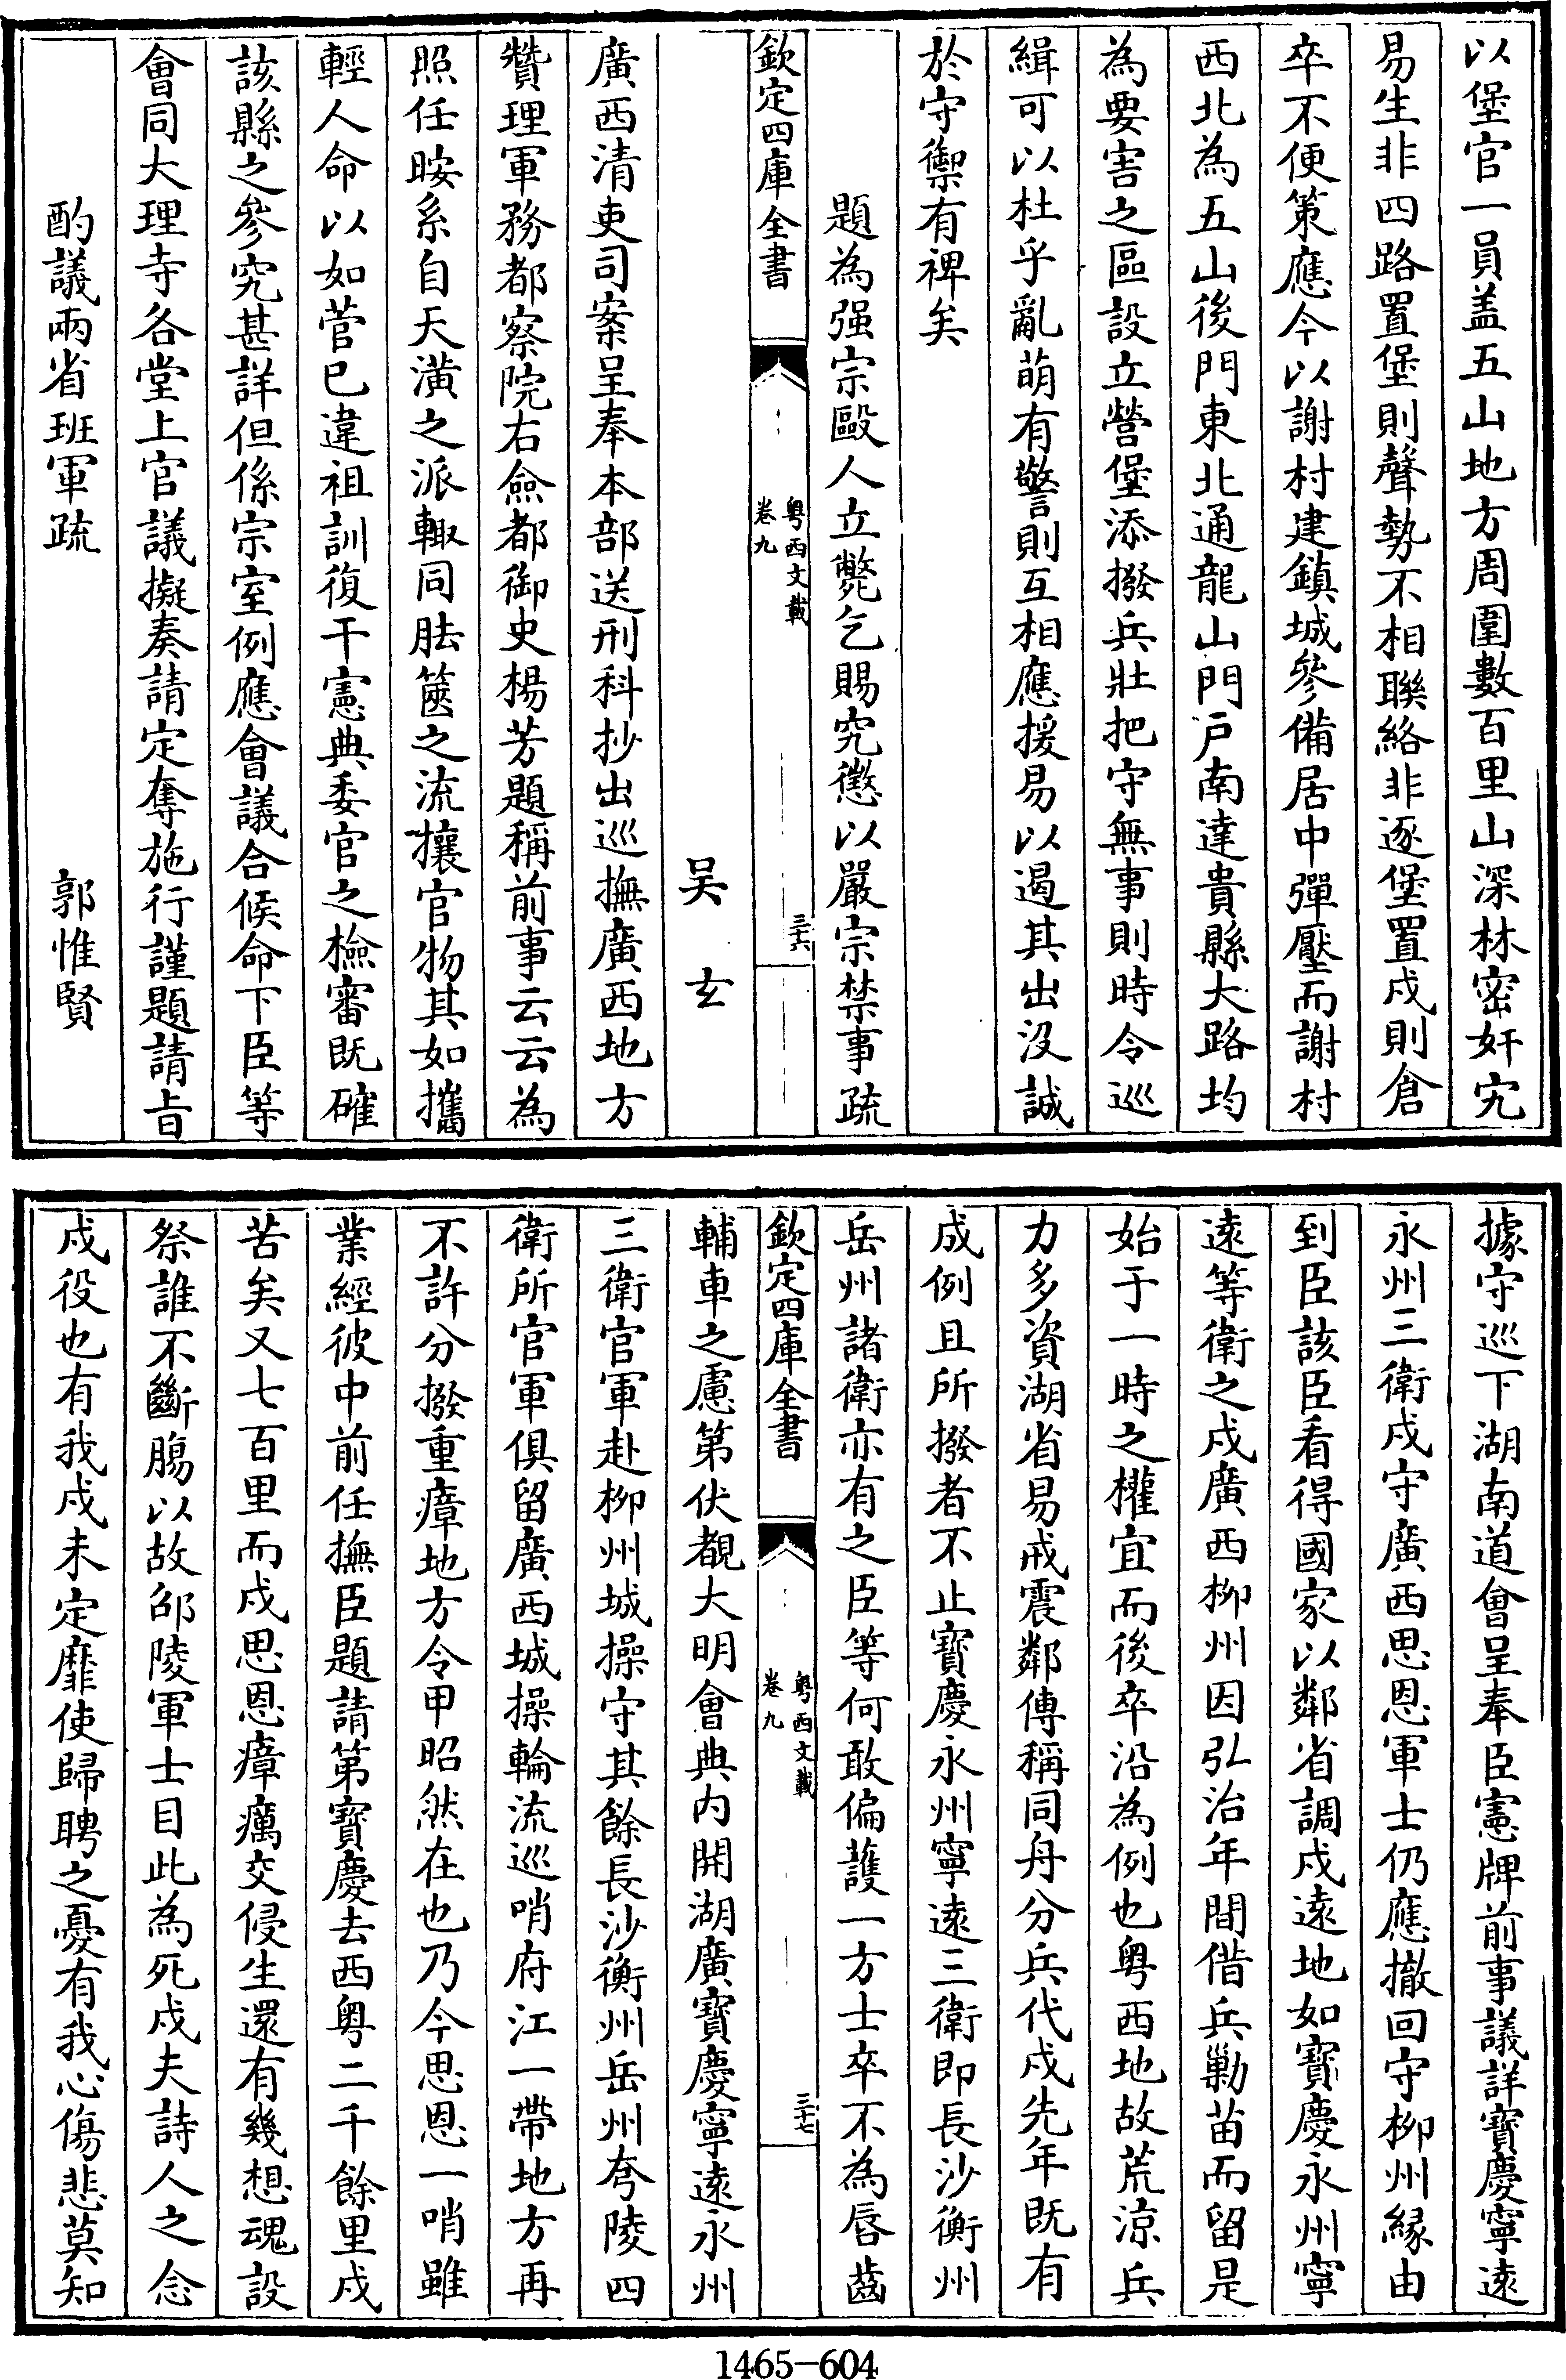 以堡官一員盖五山地方周圍數百里山深林密奸宄
易生非四路置堡則聲勢不相聯絡非逐堡置戍則倉
卒不便策應今以謝村建鎮城參備居中彈壓而謝村
西北為五山後門東北通龍山門戶南達貴縣大路均
為要害之區設立營堡添撥兵壯把守無事則時令巡
緝可以杜乎亂萌有警則互相應援易以遏其出沒誠
於守禦有裨矣
題為强宗毆人立斃乞賜究懲以嚴宗禁事疏
欽定四庫全書
粤西文載
卷九
三十六
吴玄
廣西清吏司案呈奉本部送刑科抄出巡撫廣西地方
贊理軍務都察院右僉都御史楊芳題稱前事云云為
照任晈系自天潢之派輙同胠篋之流攘官物其如攜
輕人命以如菅已違祖訓復干憲典委官之檢審既確
該縣之參究甚詳但係宗室例應會議合候命下臣等
會同大理寺各堂上官議擬奏請定奪施行謹題請㫖
酌議兩省班軍疏
郭惟賢
據守巡下湖南道會呈奉臣憲牌前事議詳寳慶寧遠
永州三衛戍守廣西思恩軍士仍應撤回守柳州緣由
到臣該臣看得國家以鄰省調戍遠地如寳慶永州寧
遠等衛之戍廣西柳州因弘治年間借兵勦苗而留是
始于一時之權宜而後卒沿為例也粤西地故荒涼兵
力多資湖省易戒震鄰傳稱同舟分兵代戍先年既有
成例且所撥者不止寳慶永州寧遠三衛即長沙衡州
岳州諸衛亦有之臣等何敢偏護一方士卒不為唇齒
欽定四庫全書
粤西文載
卷九
三十七
輔車之慮第伏覩大明會典内開湖廣寳慶寧遠永州
三衛官軍赴柳州城操守其餘長沙衡州岳州夸陵四
衛所官軍俱留廣西城操輪流巡哨府江一帶地方再
不許分撥重瘴地方令甲昭然在也乃今思恩一哨雖
業經彼中前任撫臣題請第寳慶去西粤二千餘里戍
苦矣又七百里而戍思恩瘴癘交侵生還有幾想魂設
祭誰不斷膓以故邵陵軍士目此為死戍夫詩人之念
戍役也有我戍未定靡使歸聘之憂有我心傷悲莫知
1465-604